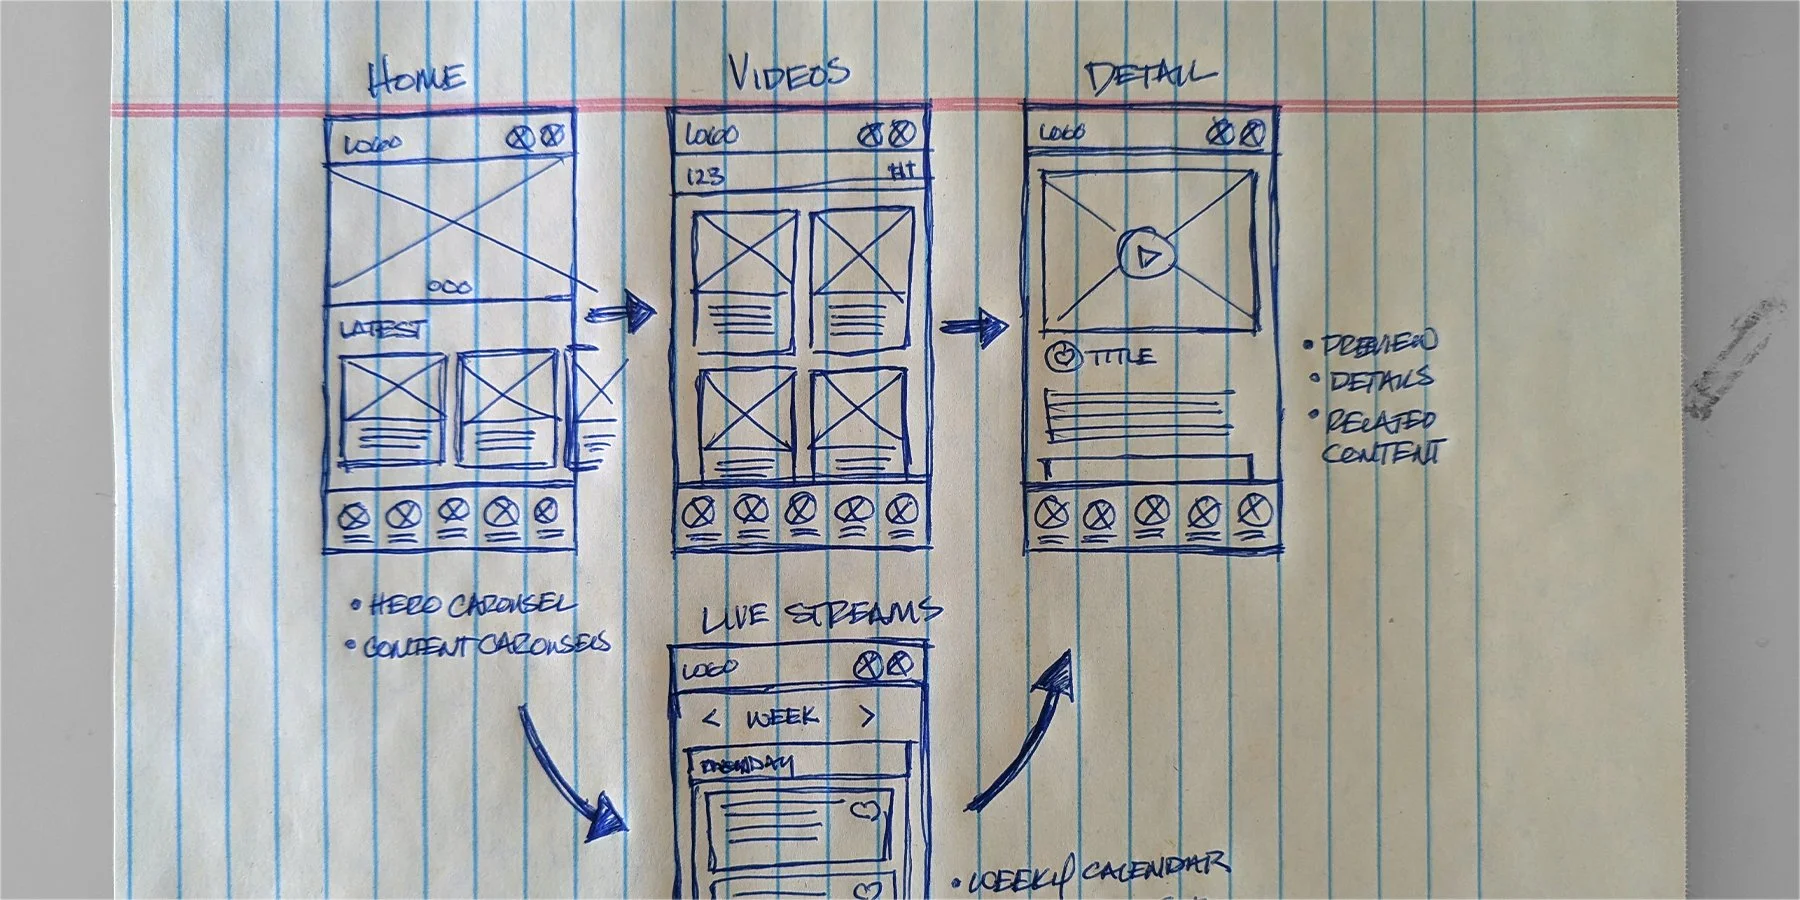 HOME
LOGO
LATEST
• HERO CAROUSEL
• CONTENT CAROUSELS
VIDEOS
LOGO
123
DETAIL
LOGO
TITLE
• PREVIEW
• DETAILS
• RELATED
CONTENT
LIVE STREAMS
LOGO
< WEEK >
• WEEKLY CALENDAR